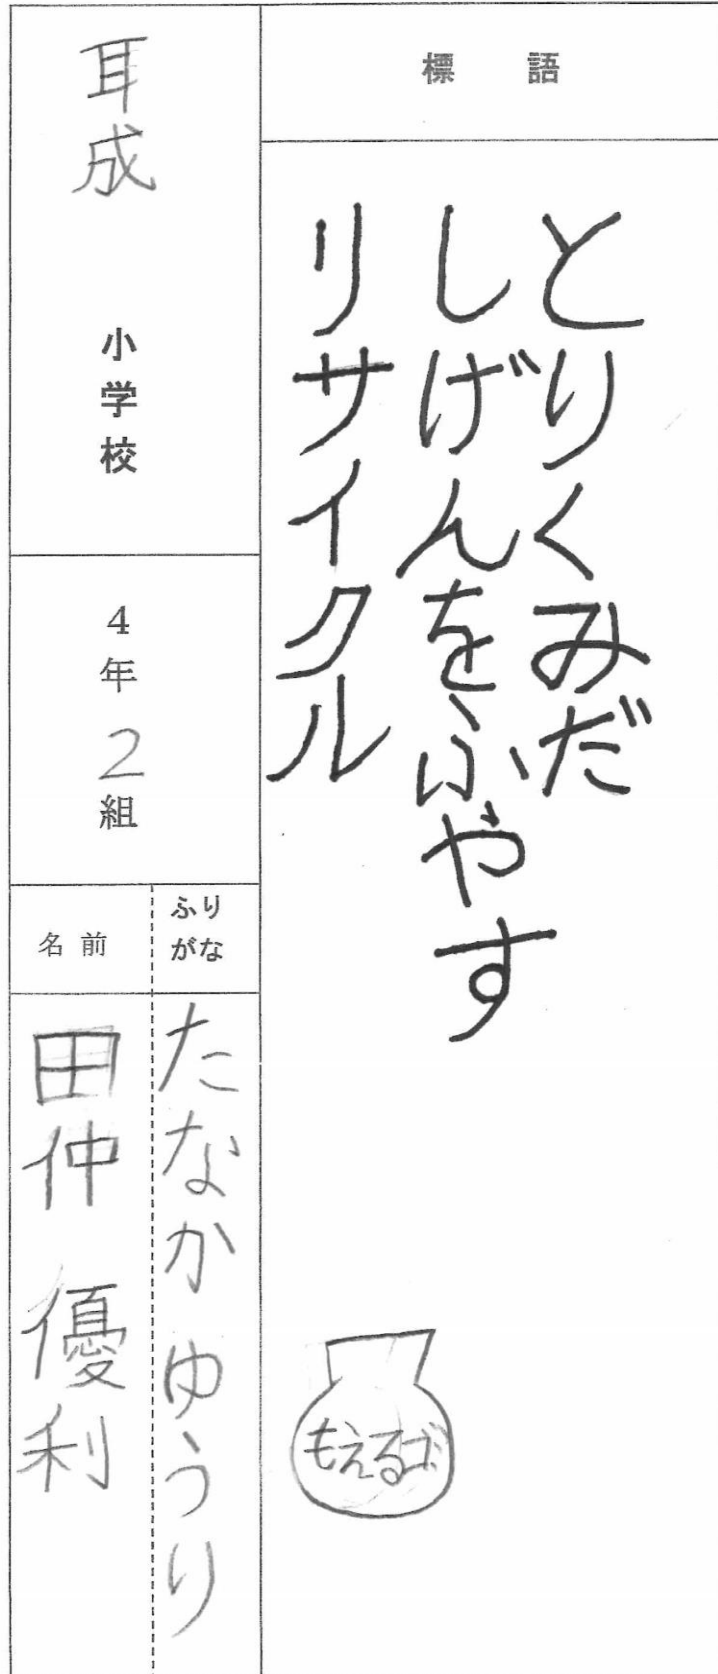 標語
とりくみだ
しげんをふやす
リサイクル
耳成
小学校
4年2組
ふりがな
たなか ゆうり
名前
田仲 優利
もえるゴ